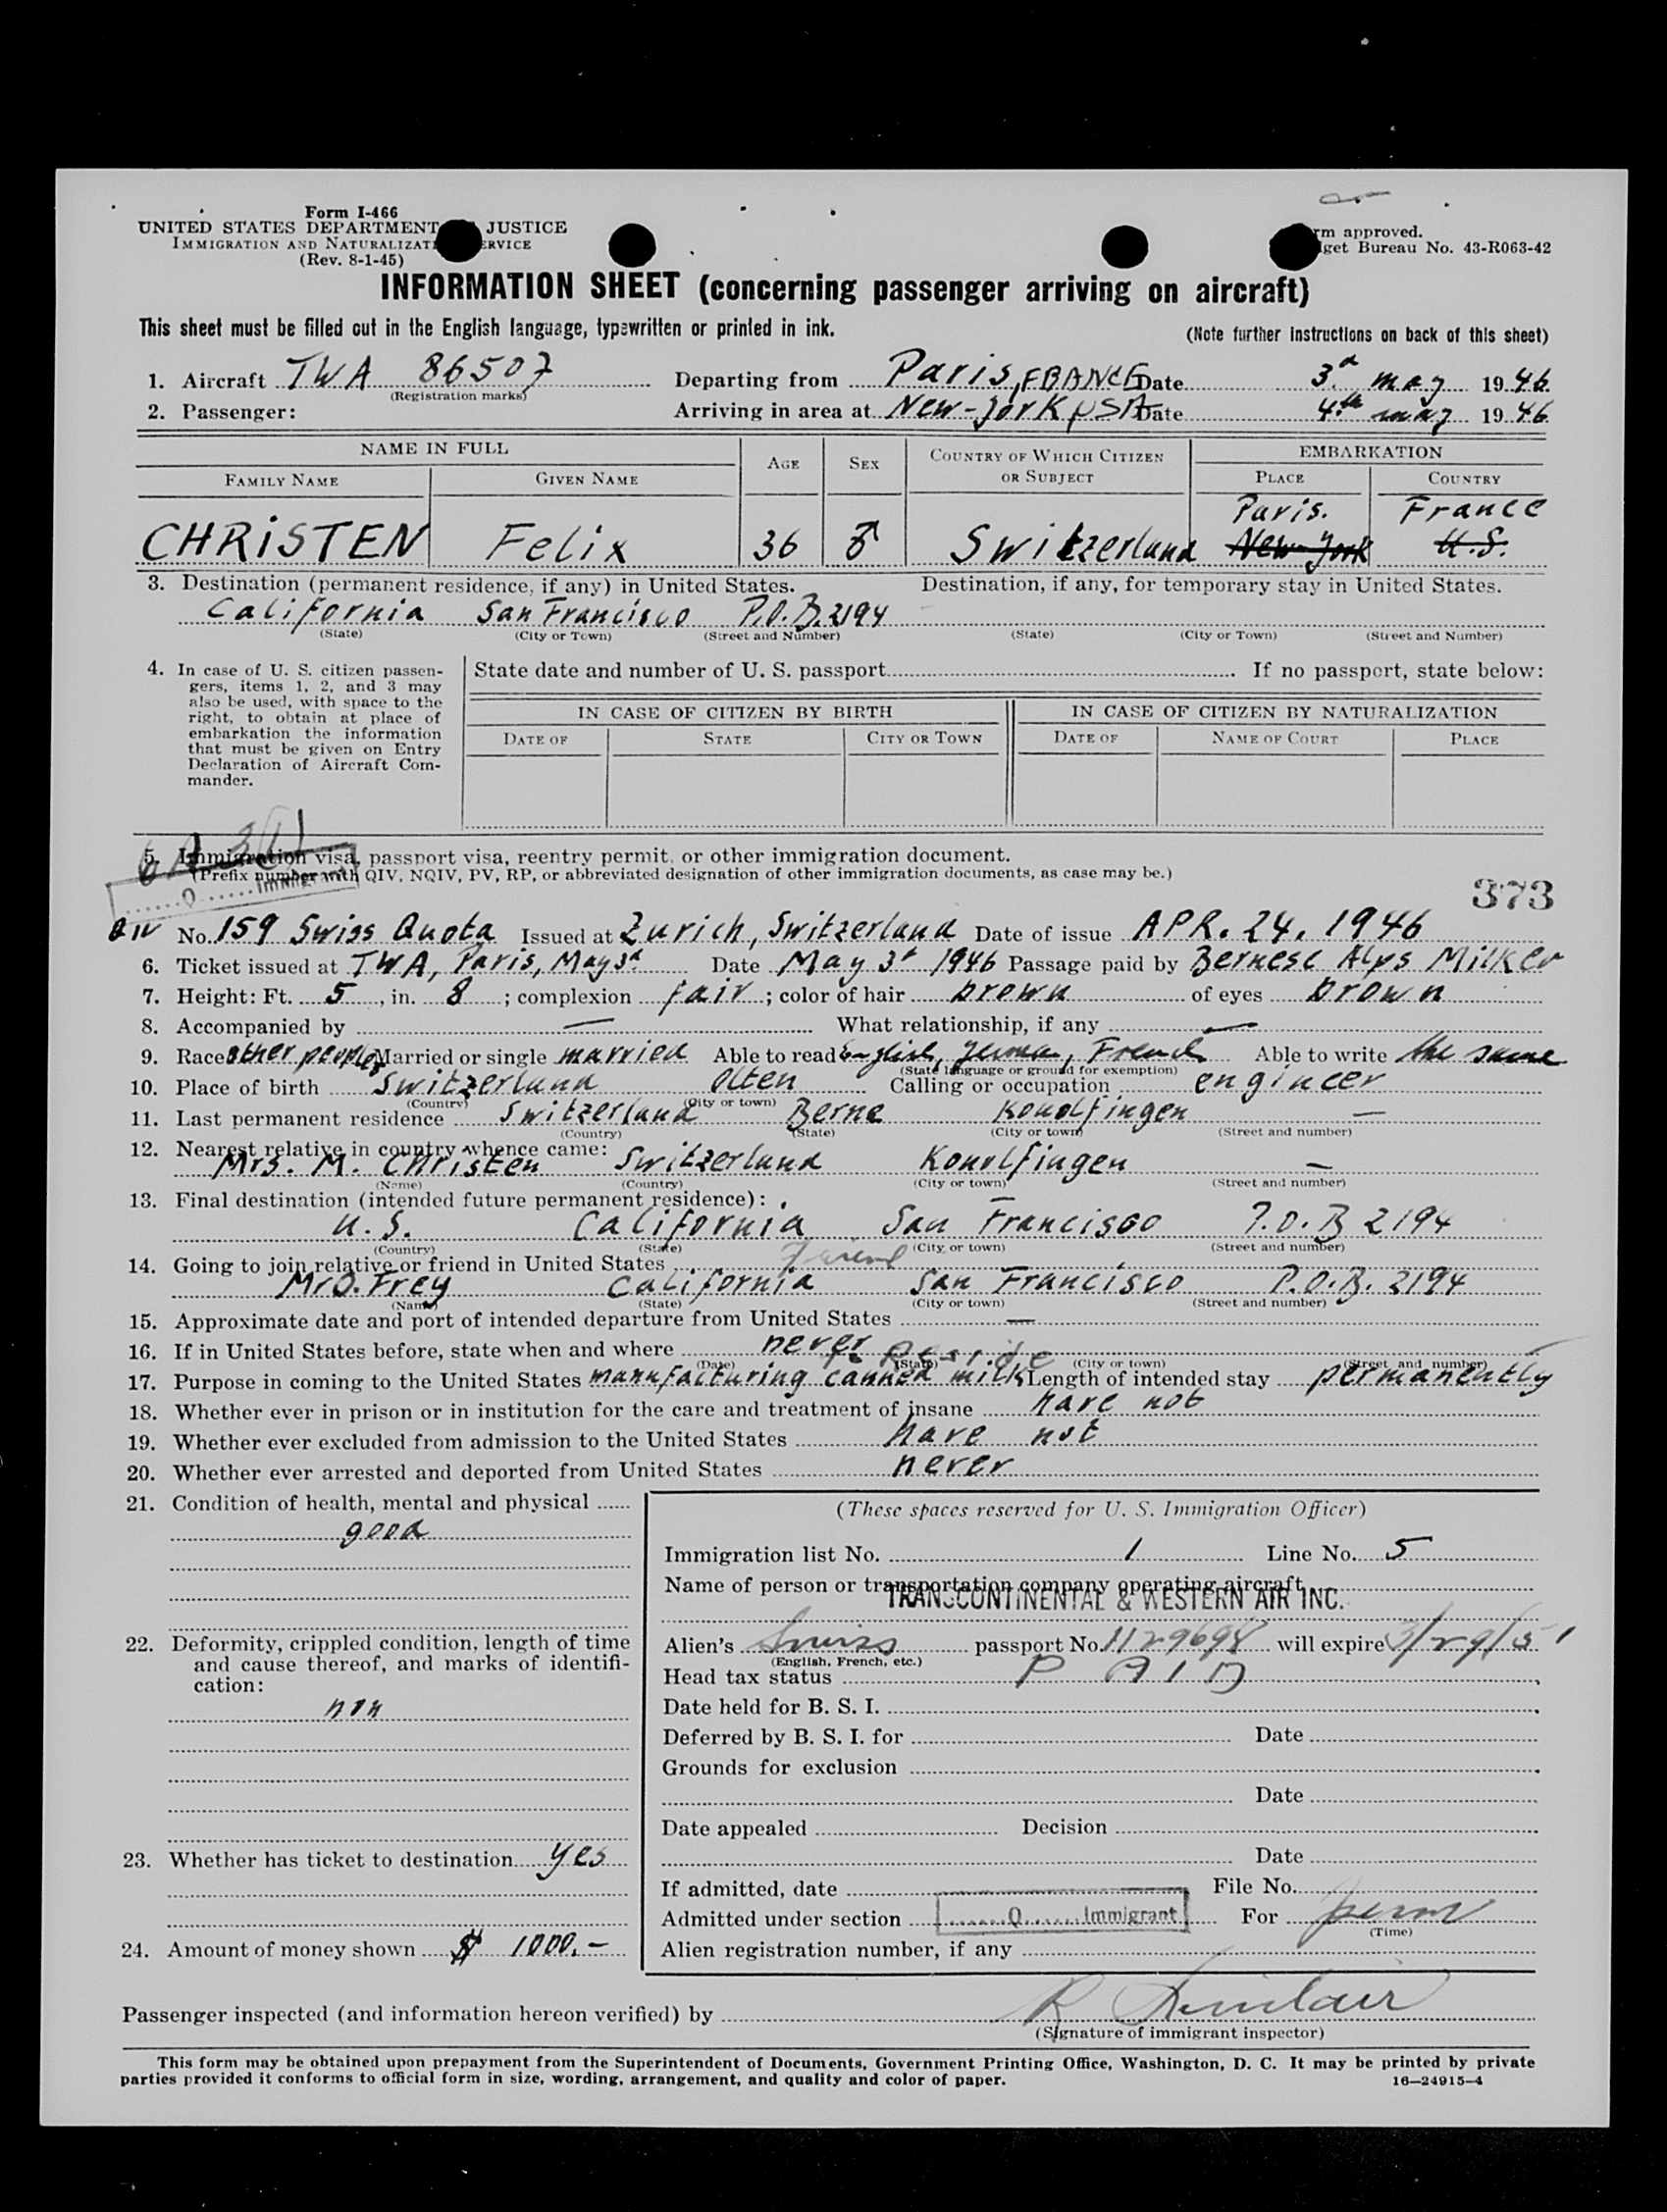 Form I-466
UNITED STATES DEPARTMENT JUSTICE
IMMIGRATION AND NATURALIZATI ERVICE
(Rev. 8-1-45)
rm approved.
get Bureau No. 43-R063-42
INFORMATION SHEET (concerning passenger arriving on aircraft)
This sheet must be filled out in the English language, typewritten or printed in ink. (Note further instructions on back of this sheet)
1. Aircraft TWA 86507 Departing from Paris, FRANCE Date 3.d may 1946.
(Registration marks)
2. Passenger: Arriving in area at New-York USA Date 4.th may 1946.
NAME IN FULL AGE SEX COUNTRY OF WHICH CITIZEN OR SUBJECT EMBARKATION
FAMILY NAME GIVEN NAME PLACE COUNTRY
Paris. France
CHRISTEN Felix 36 ♂ Switzerland New-York U.S.
3. Destination (permanent residence, if any) in United States. Destination, if any, for temporary stay in United States.
California San Francisco P.O.B. 2194
(State) (City or Town) (Street and Number) (State) (City or Town) (Street and Number)
4. In case of U. S. citizen passengers, items 1, 2, and 3 may also be used, with space to the right, to obtain at place of embarkation the information that must be given on Entry Declaration of Aircraft Commander.
State date and number of U. S. passport If no passport, state below:
IN CASE OF CITIZEN BY BIRTH IN CASE OF CITIZEN BY NATURALIZATION
DATE OF STATE CITY OR TOWN DATE OF NAME OF COURT PLACE
5. Immigration visa, passport visa, reentry permit, or other immigration document.
(Prefix number with QIV, NQIV, PV, RP, or abbreviated designation of other immigration documents, as case may be.)
Q Immigrant
373
QIV No. 159 Swiss Quota Issued at Zurich, Switzerland Date of issue APR. 24. 1946
6. Ticket issued at TWA, Paris, May 3d Date May 3d 1946 Passage paid by Bernese Alps Milk Co
7. Height: Ft. 5, in. 8; complexion fair; color of hair brown of eyes brown
8. Accompanied by — What relationship, if any —
9. Race other peoples Married or single married Able to read English, German, French Able to write the same
(State language or ground for exemption)
10. Place of birth Switzerland Olten Calling or occupation engineer
(Country) (City or town)
11. Last permanent residence Switzerland Berne Konolfingen —
(Country) (State) (City or town) (Street and number)
12. Nearest relative in country whence came:
Mrs. M. Christen Switzerland Konolfingen —
(Name) (Country) (City or town) (Street and number)
13. Final destination (intended future permanent residence):
U.S. California San Francisco P.O.B 2194
(Country) (State) (City or town) (Street and number)
14. Going to join relative or friend in United States Friend
Mr O. Frey California San Francisco P.O.B. 2194
(Name) (State) (City or town) (Street and number)
15. Approximate date and port of intended departure from United States —
16. If in United States before, state when and where never
(Date) (State) (City or town) (Street and number)
to Reside
17. Purpose in coming to the United States manufacturing canned milk Length of intended stay permanently
18. Whether ever in prison or in institution for the care and treatment of insane have not
19. Whether ever excluded from admission to the United States have not
20. Whether ever arrested and deported from United States never
21. Condition of health, mental and physical
good
22. Deformity, crippled condition, length of time and cause thereof, and marks of identification:
non
23. Whether has ticket to destination yes
24. Amount of money shown $ 1000.-
(These spaces reserved for U. S. Immigration Officer)
Immigration list No. 1 Line No. 5
Name of person or transportation company operating aircraft
TRANSCONTINENTAL & WESTERN AIR INC.
Alien's Swiss passport No. 1129698 will expire 3/29/51
(English, French, etc.)
Head tax status PAID
Date held for B. S. I.
Deferred by B. S. I. for Date
Grounds for exclusion
Date
Date appealed Decision
Date
If admitted, date File No.
Admitted under section Q Immigrant For perm
(Time)
Alien registration number, if any
Passenger inspected (and information hereon verified) by R Sinclair
(Signature of immigrant inspector)
This form may be obtained upon prepayment from the Superintendent of Documents, Government Printing Office, Washington, D. C. It may be printed by private
parties provided it conforms to official form in size, wording, arrangement, and quality and color of paper. 16—24915-4